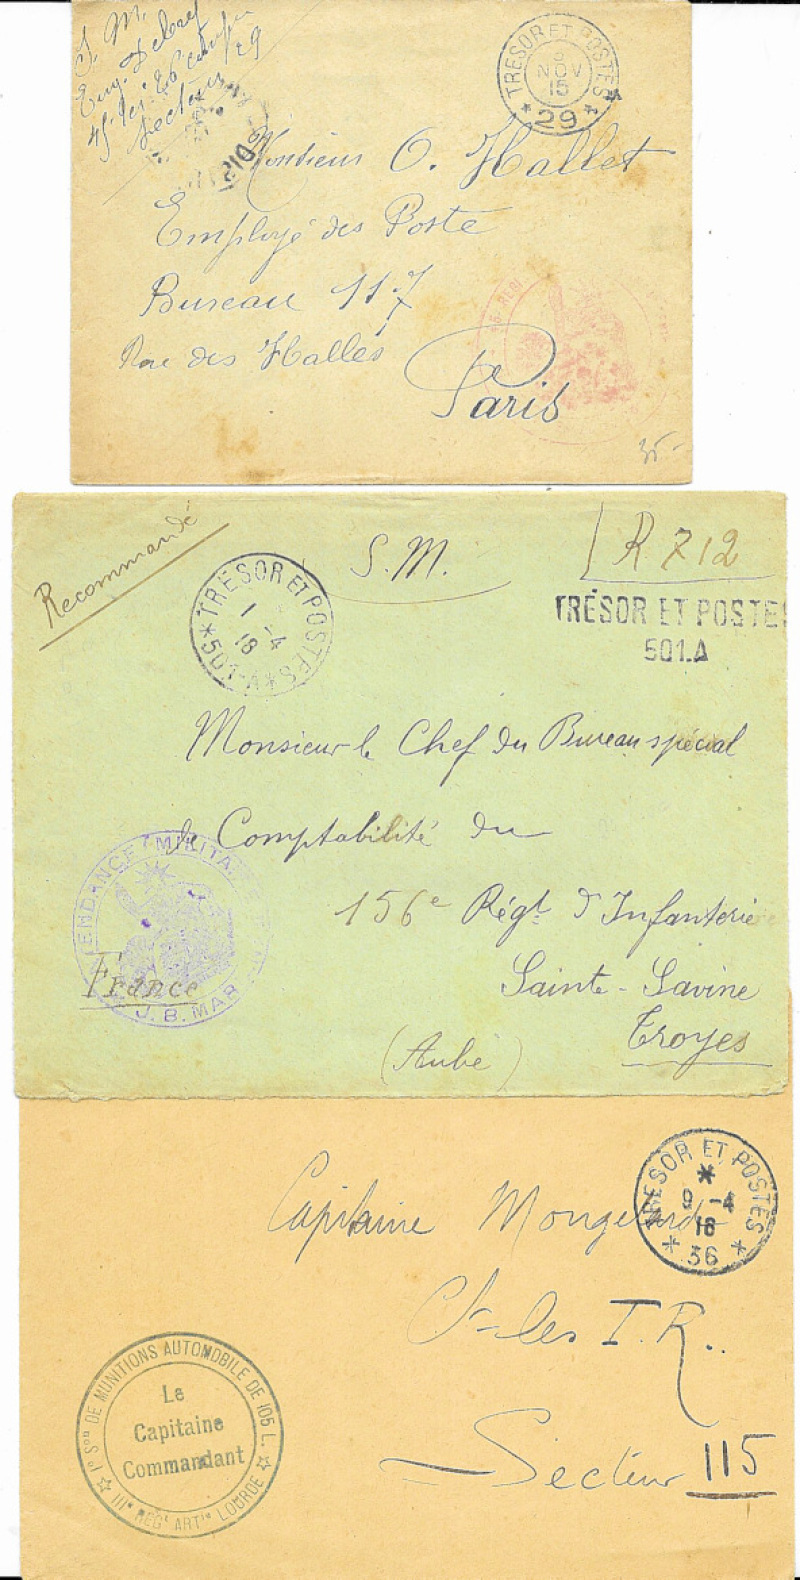 S. M.
Eug. Debref
45e Ter. 26e comp.
Secteur 29
TRESOR ET POSTES
5
NOV
15
* 29 *
Monsieur O. Hallet
Employé des Poste
Bureau 117
Rue des Halles
Paris
35-
Recommandé
TRÉSOR ET POSTES
1 -4
18
*501-A*
S. M.
R 712
TRÉSOR ET POSTES
501.A
Monsieur le Chef du Bureau spécial
de Comptabilité du
156e Régt d'Infanterie
Sainte-Savine
Troyes
(Aube)
ENDANCE MILITAI
J. B. MAR
France
TRESOR ET POSTES
*
9 -4
16
* 36 *
Capitaine
Ct les T. R.
Secteur 115
1e Son DE MUNITIONS AUTOMOBILE DE 105 L.
Le
Capitaine
Commandant
IIIe REGt ARTie LOURDE